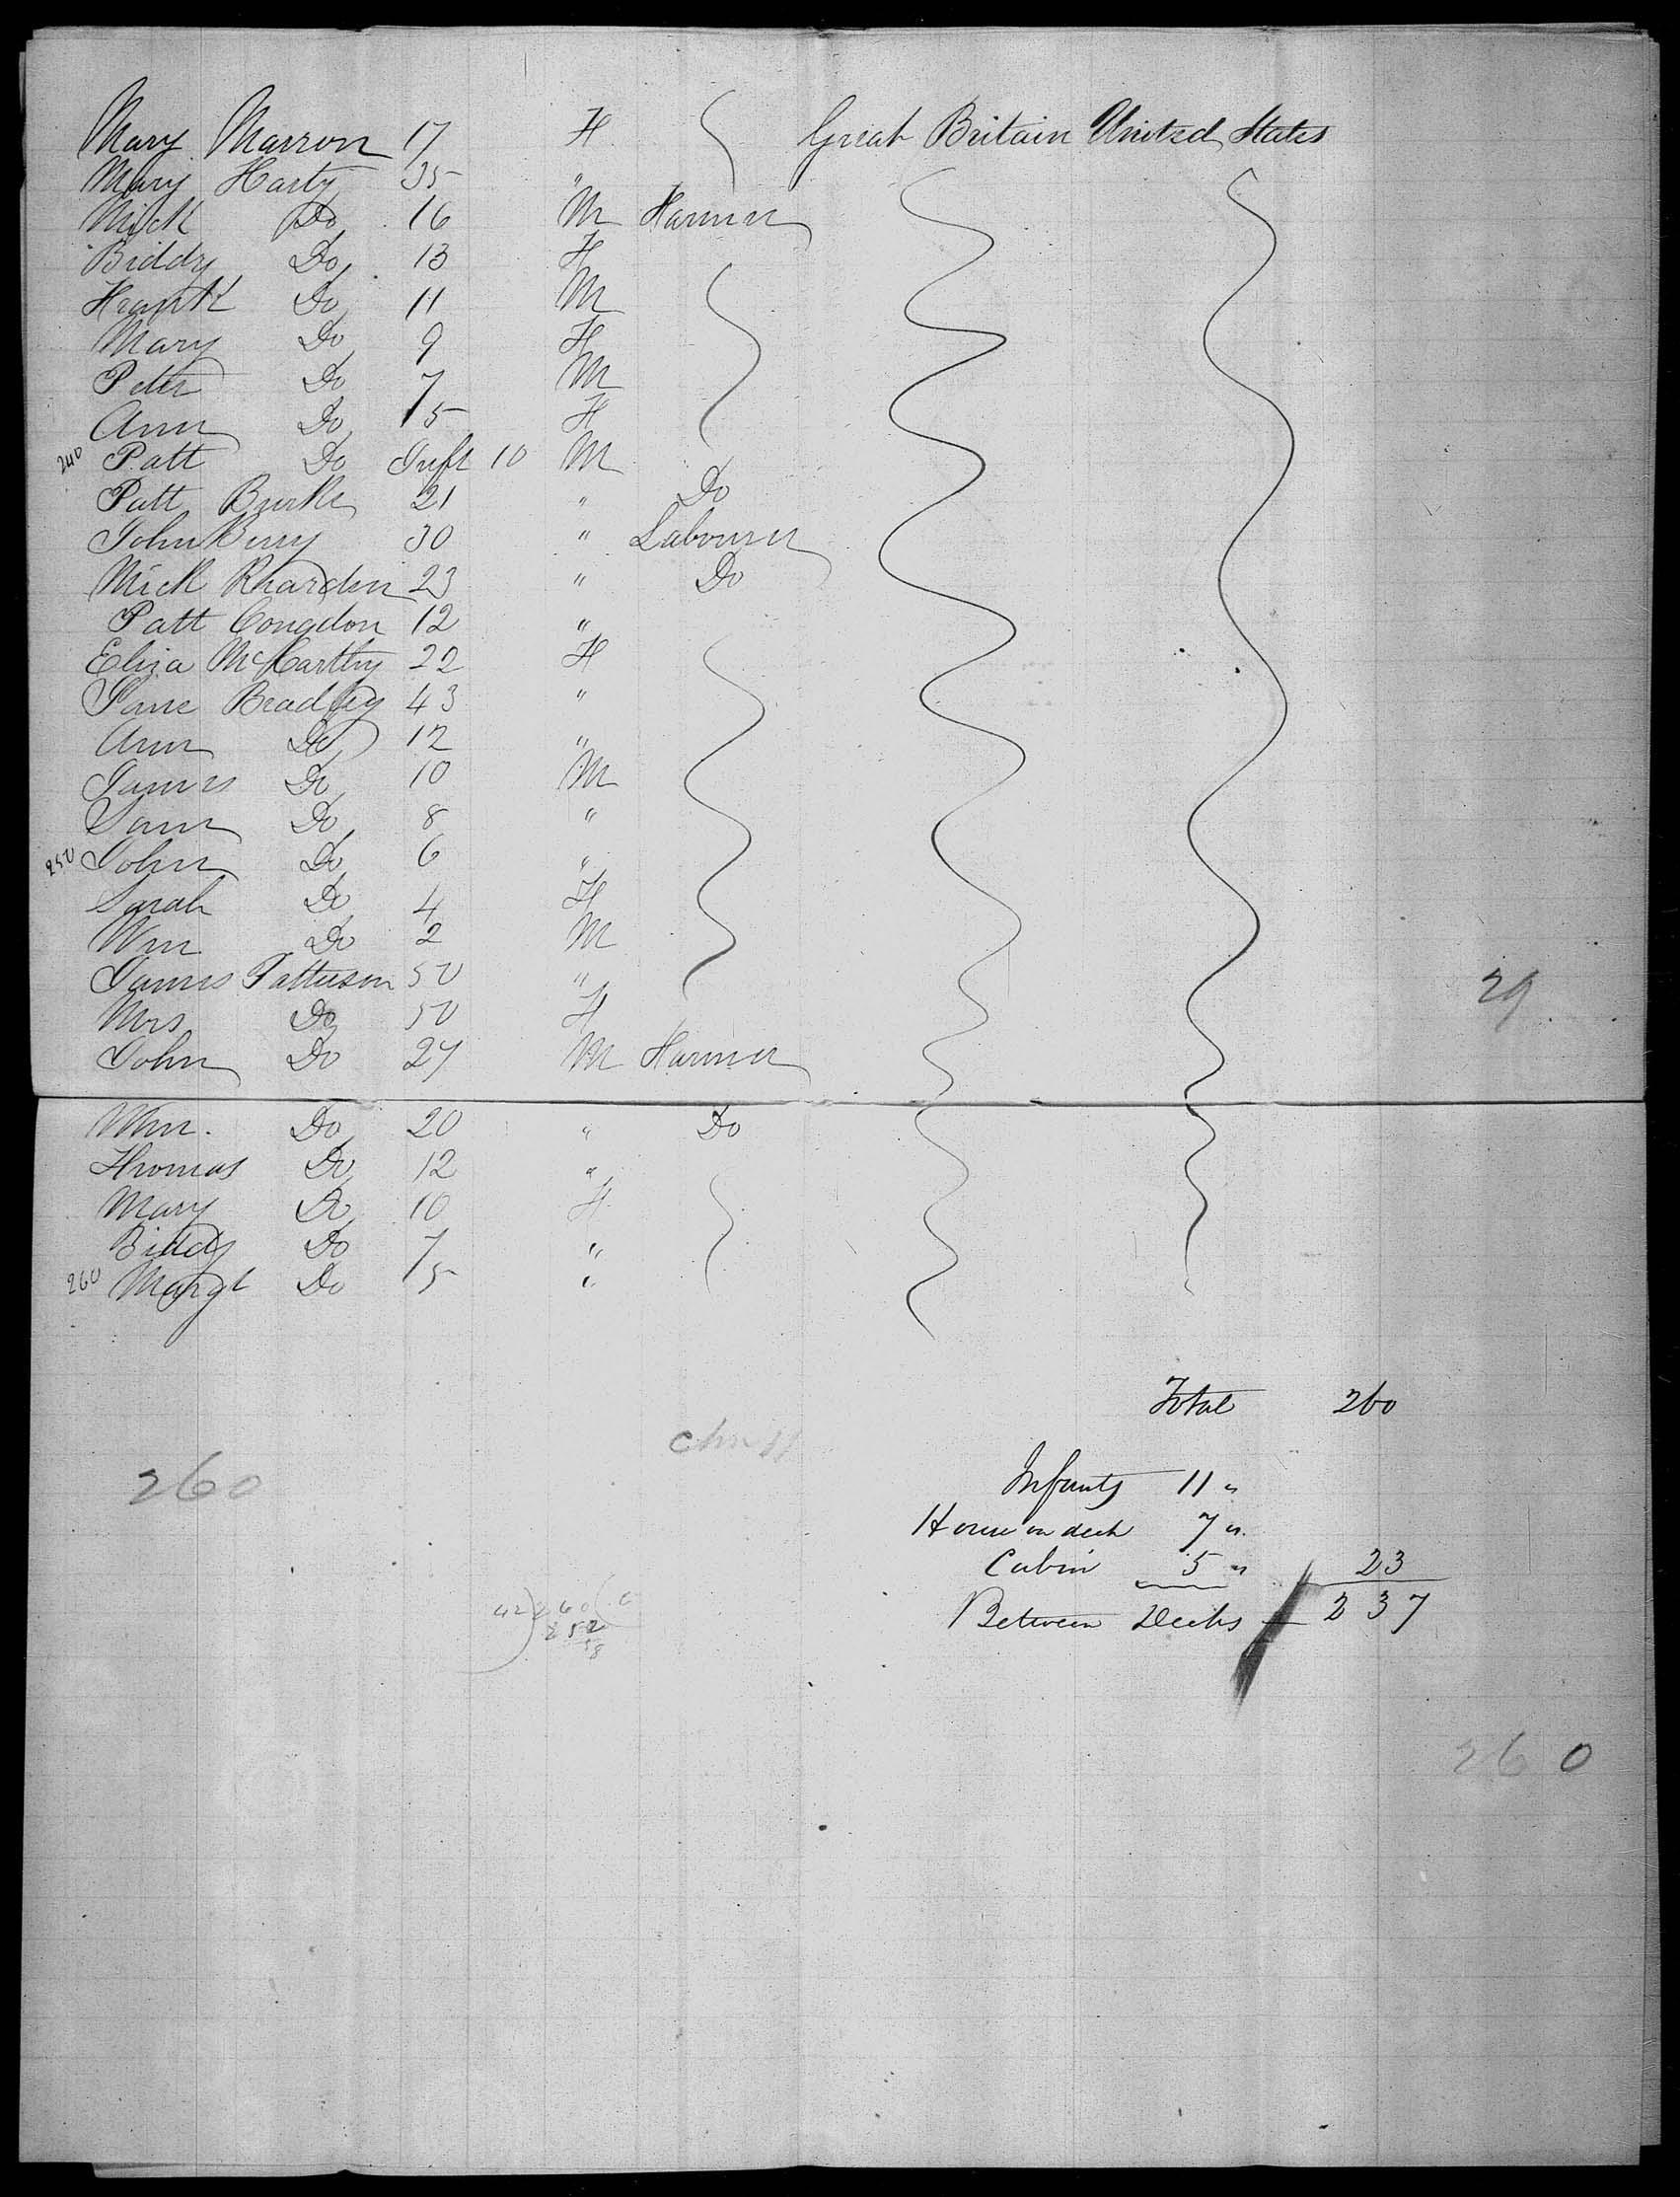 Mary Marron 17 F Great Britain United States
Mary Harty 35 "
Mick Do 16 M Farmer
Biddy Do 13 F
Frank Do 11 M
Mary Do 9 F
Peter Do 7 M
Ann Do 5 F
240 Patt Do Inft 10 M
Patt Burke 21 " Do
John Berry 30 " Labourer
Mick Rhardin 23 " Do
Patt Congdon 12 "
Eliza McCarthy 22 F
Jane Bradley 43 "
Ann Do 12 "
James Do 10 M
Sam Do 8 "
250 John Do 6 "
Sarah Do 4 F
Wm Do 2 M
James Patterson 50 "
Mrs Do 50 F
John Do 27 M Farmer
29
Wm. Do 20 " Do
Thomas Do 12 "
Mary Do 10 F
Biddy Do 7 "
260 Margt Do 5 "
Total 260
260
Infants 11 "
House on deck 7 "
Cabin 5 " 23
Between Decks 237
42)260(6
252
8
260